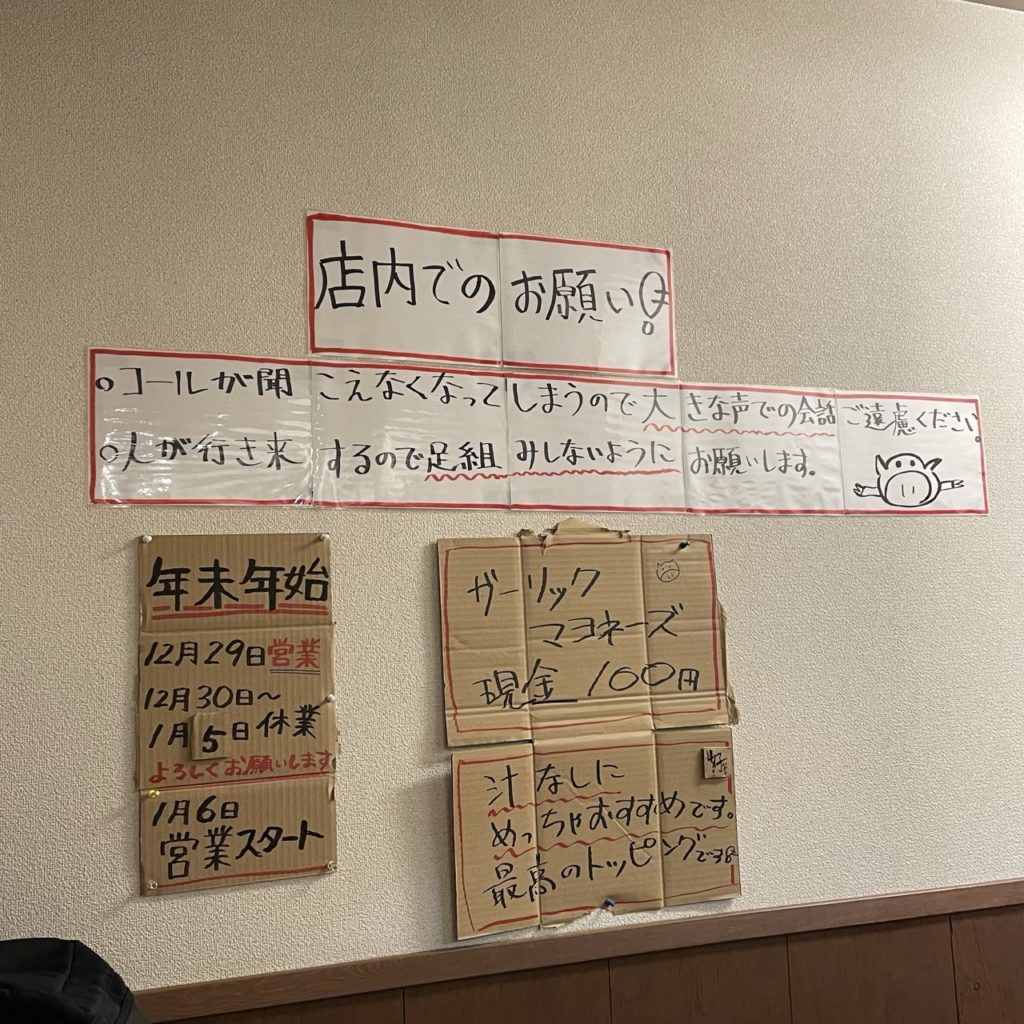 店内でのお願い!
○コールが聞こえなくなってしまうので大きな声での会話ご遠慮ください。
○人が行き来するので足組みしないようにお願いします。
年末年始
12月29日営業
12月30日〜
1月5日休業
よろしくお願いします
1月6日
営業スタート
ガーリック
マヨネーズ
現金 100円
汁なしに
めっちゃおすすめです。
最高のトッピングです